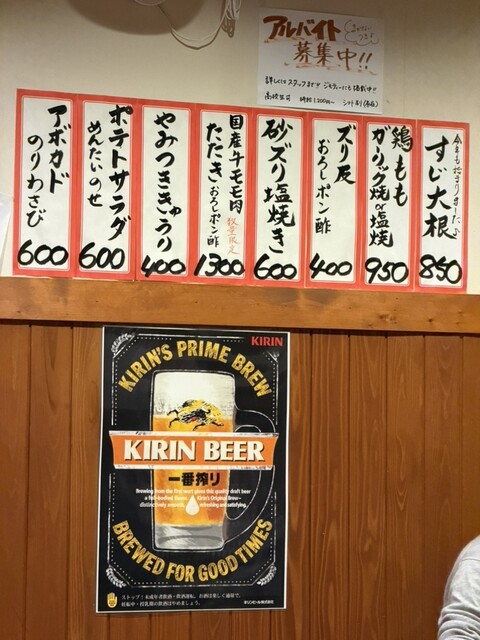 アルバイト
募集中!!
詳しくはスタッフまで
高校生可 時給1,300円〜 シフト制
今年も始まりました
すじ大根
850
鶏もも
ガーリック焼or塩焼
950
ズリ皮
おろしポン酢
400
砂ズリ塩焼き
600
国産牛モモ肉 数量限定
たたきおろしポン酢
1300
やみつききゅうり
400
ポテトサラダ
めんたいのせ
600
アボカド
のりわさび
600
KIRIN
KIRIN'S PRIME BREW
KIRIN BEER
一番搾り
Brewing from the first wort gives this quality draft beer
a full-bodied flavor. Kirin's Original Brew—
distinctively smooth, refreshing and satisfying.
BREWED FOR GOOD TIMES
ストップ!未成年者飲酒・飲酒運転。お酒は楽しく適量で。
妊娠中・授乳期の飲酒はやめましょう。
キリンビール株式会社